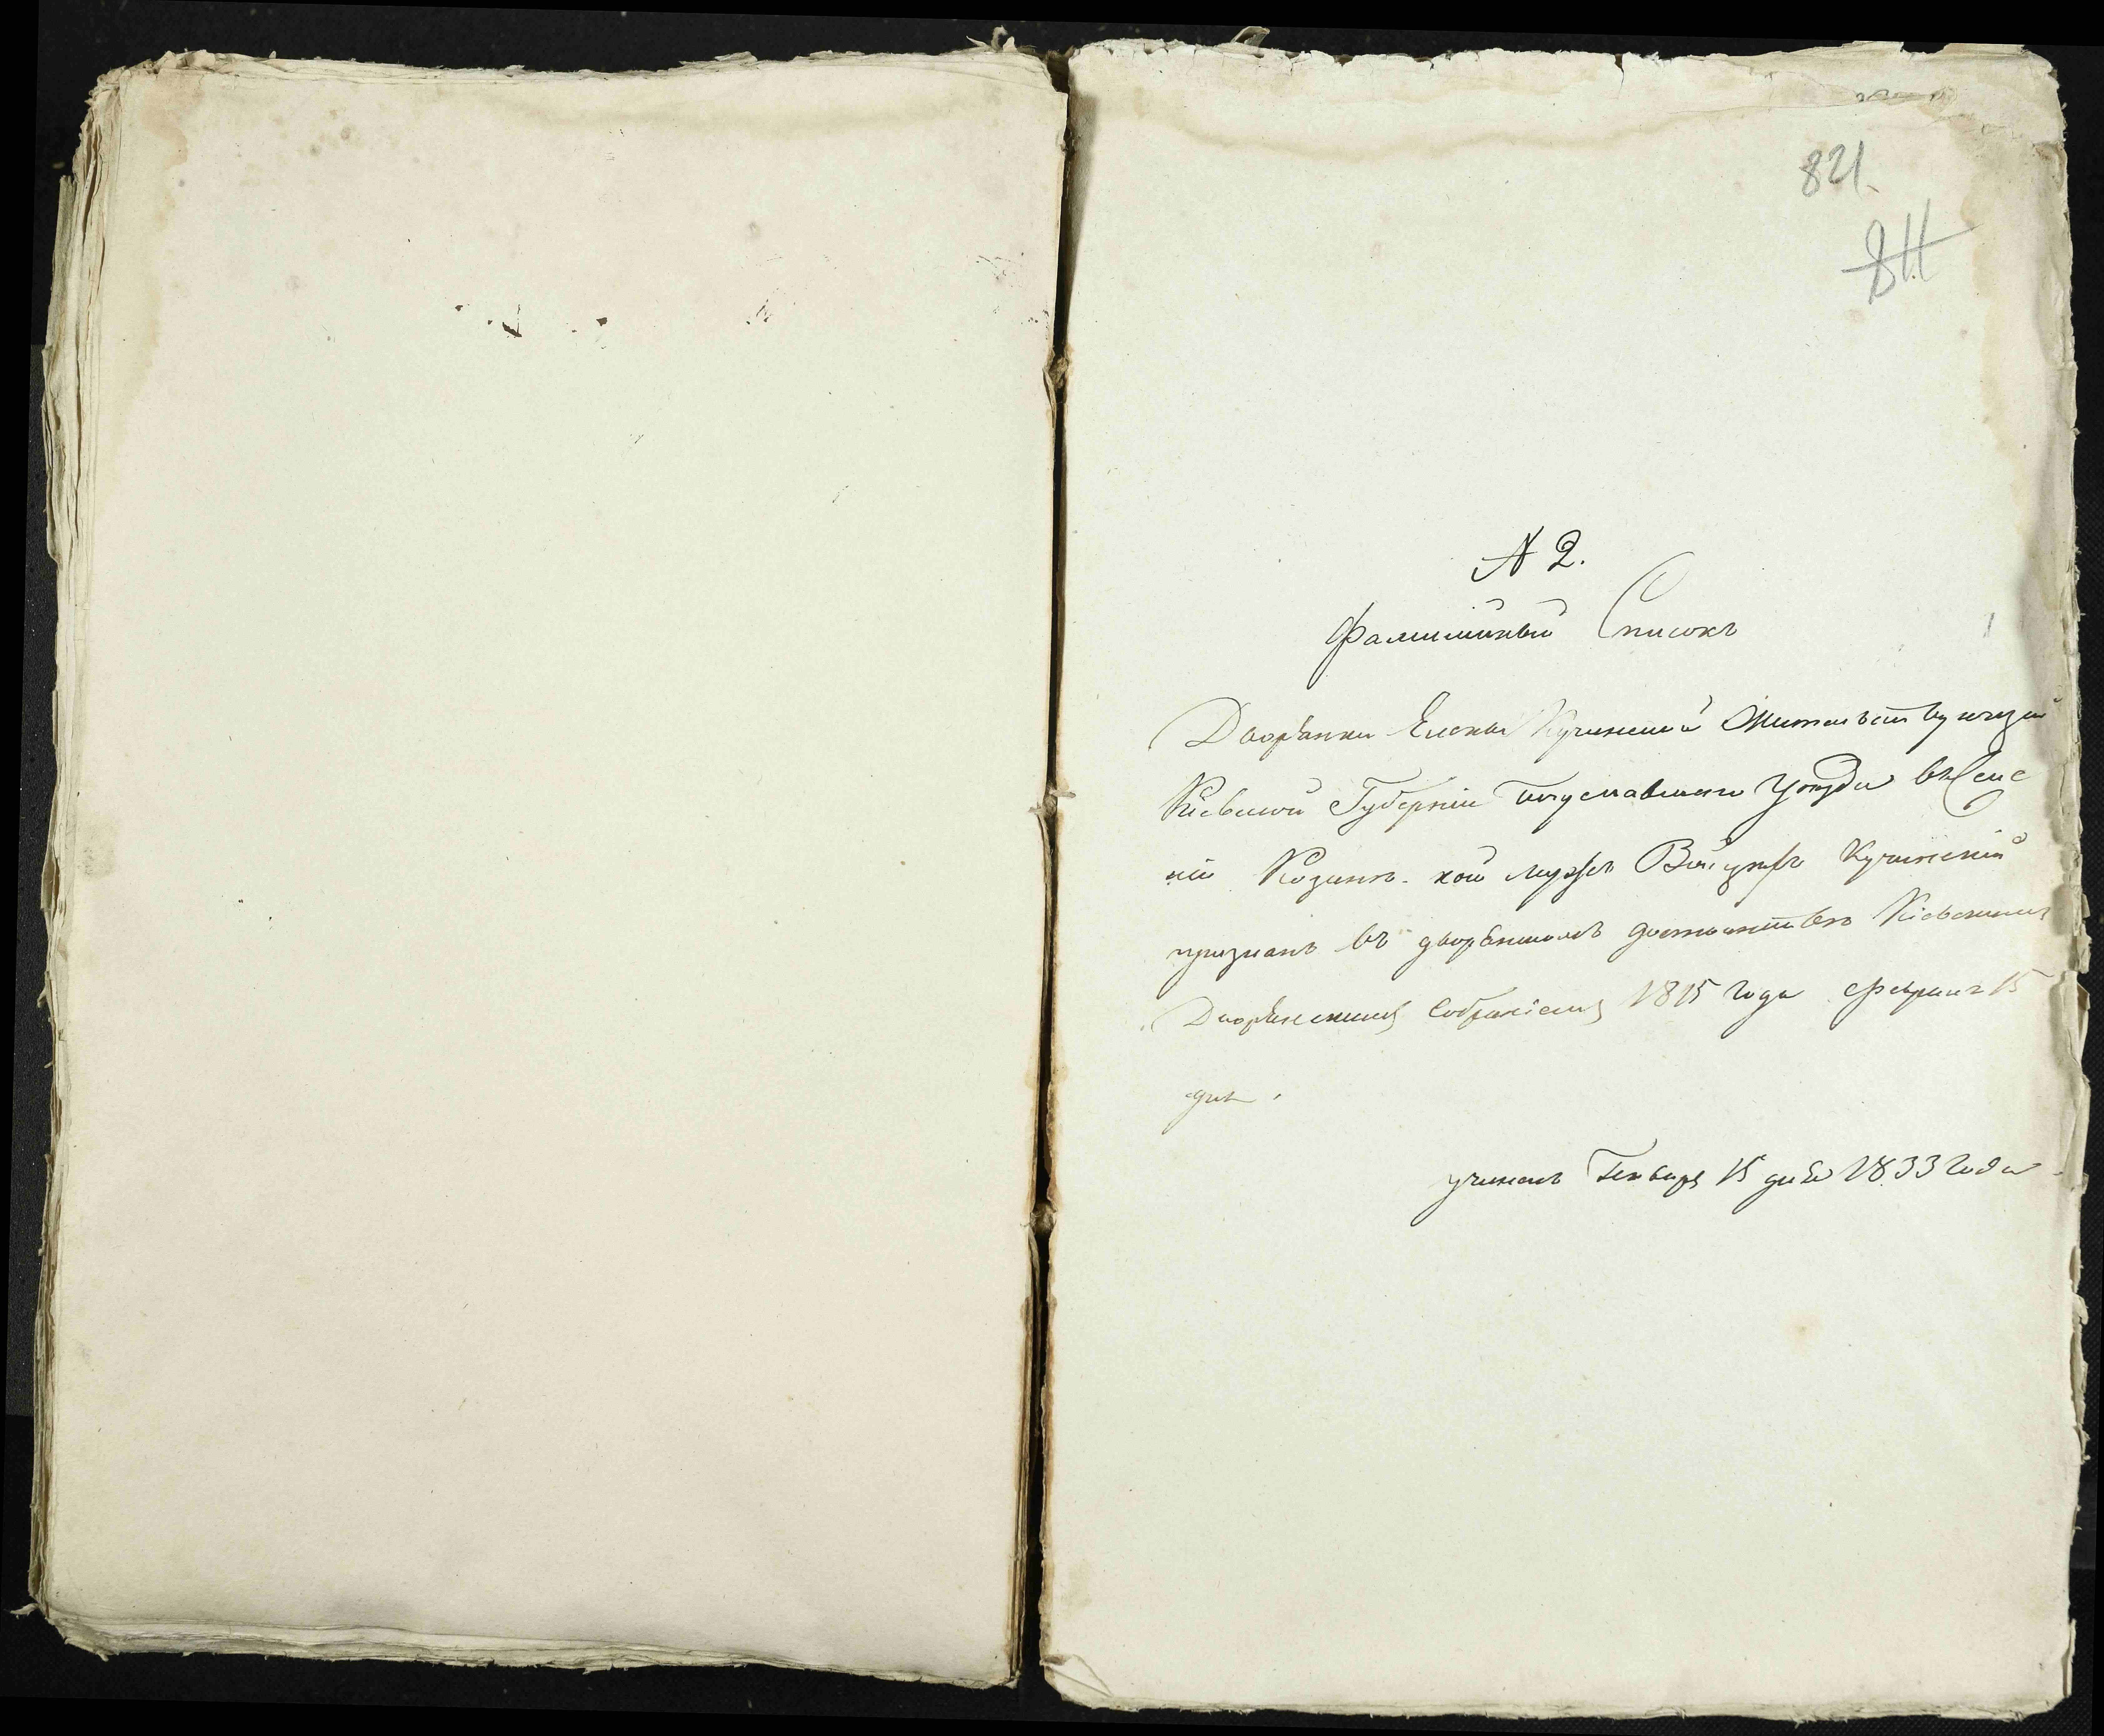 821.
811
№ 2.
Фамилійный Списокъ
Дворянки Елены Кучинской Жительствующей
Кіевской Губерніи Богуславскаго Уезда въ Селе
ніи Козинъ. кой мужъ Войцехъ Кучинскій
признанъ въ дворянскомъ достоинстве Кіевскимъ
Дворянскимъ Собраніемъ 1815 года Февраля 15
дня.
учиненъ Генваря 15 дня 1833 года